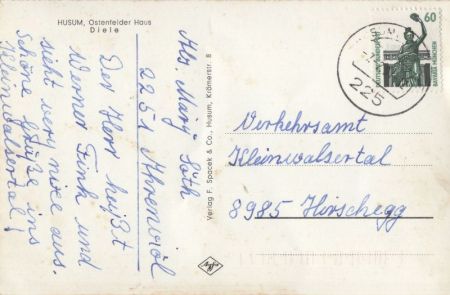 HUSUM, Ostenfelder Haus
Diele
Abs. Mary Göth
2251 Ahrenviöl
Der Herr heißt
Werner Fink und
sieht very nice aus.
Schöne Grüße ins
Kleinwalsertal!
Verlag F. Spacek & Co., Husum, Krämerstr. 8
Agfa
60
BAVARIA MÜNCHEN
225
Verkehrsamt
Kleinwalsertal
8985 Hirschegg